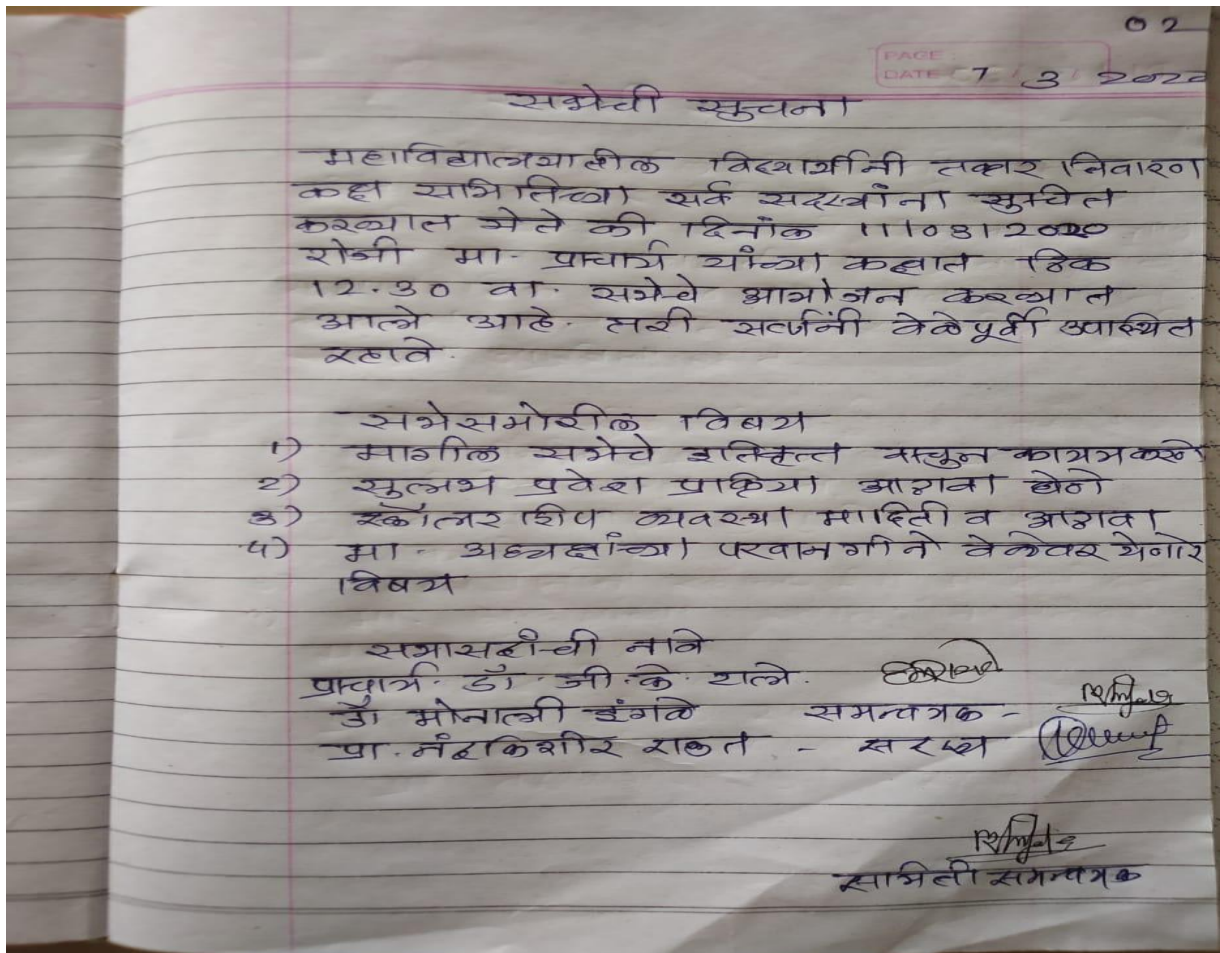 02
PAGE
DATE 7 3 2020
सभेची सुचना
महाविद्यालयातील विद्यार्थीनी तक्रार निवारण
कक्ष समितिच्या सर्व सदस्यांना सुचित
करण्यात येते की दिनांक 11/03/2020
रोजी मा. प्राचार्य यांच्या कक्षात ठिक
12.30 वा. सभेचे आयोजन करण्यात
आले आहे. तरी सर्वांनी वेळेपूर्वी उपस्थित
रहावे.
सभेसमोरील विषय
1) मागील सभेचे इतिवृत्त वाचुन कायम करणे
2) सुलभ प्रवेश प्रक्रिया आढावा घेणे
3) स्कॉलरशिप व्यवस्था माहिती व आढावा
4) मा. अध्यक्षांच्या परवानगीने वेळेवर येणारे
विषय
सभासदांची नावे
प्राचार्य. डॉ. जी. के.
डॉ मोनाली इंगळे समन्वयक -
प्रा. नंदकिशोर राऊत - सदस्य
समिती समन्वयक